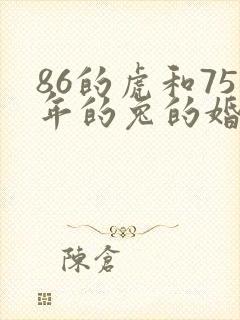 86的虎和75
年的兔的婚
陳倉